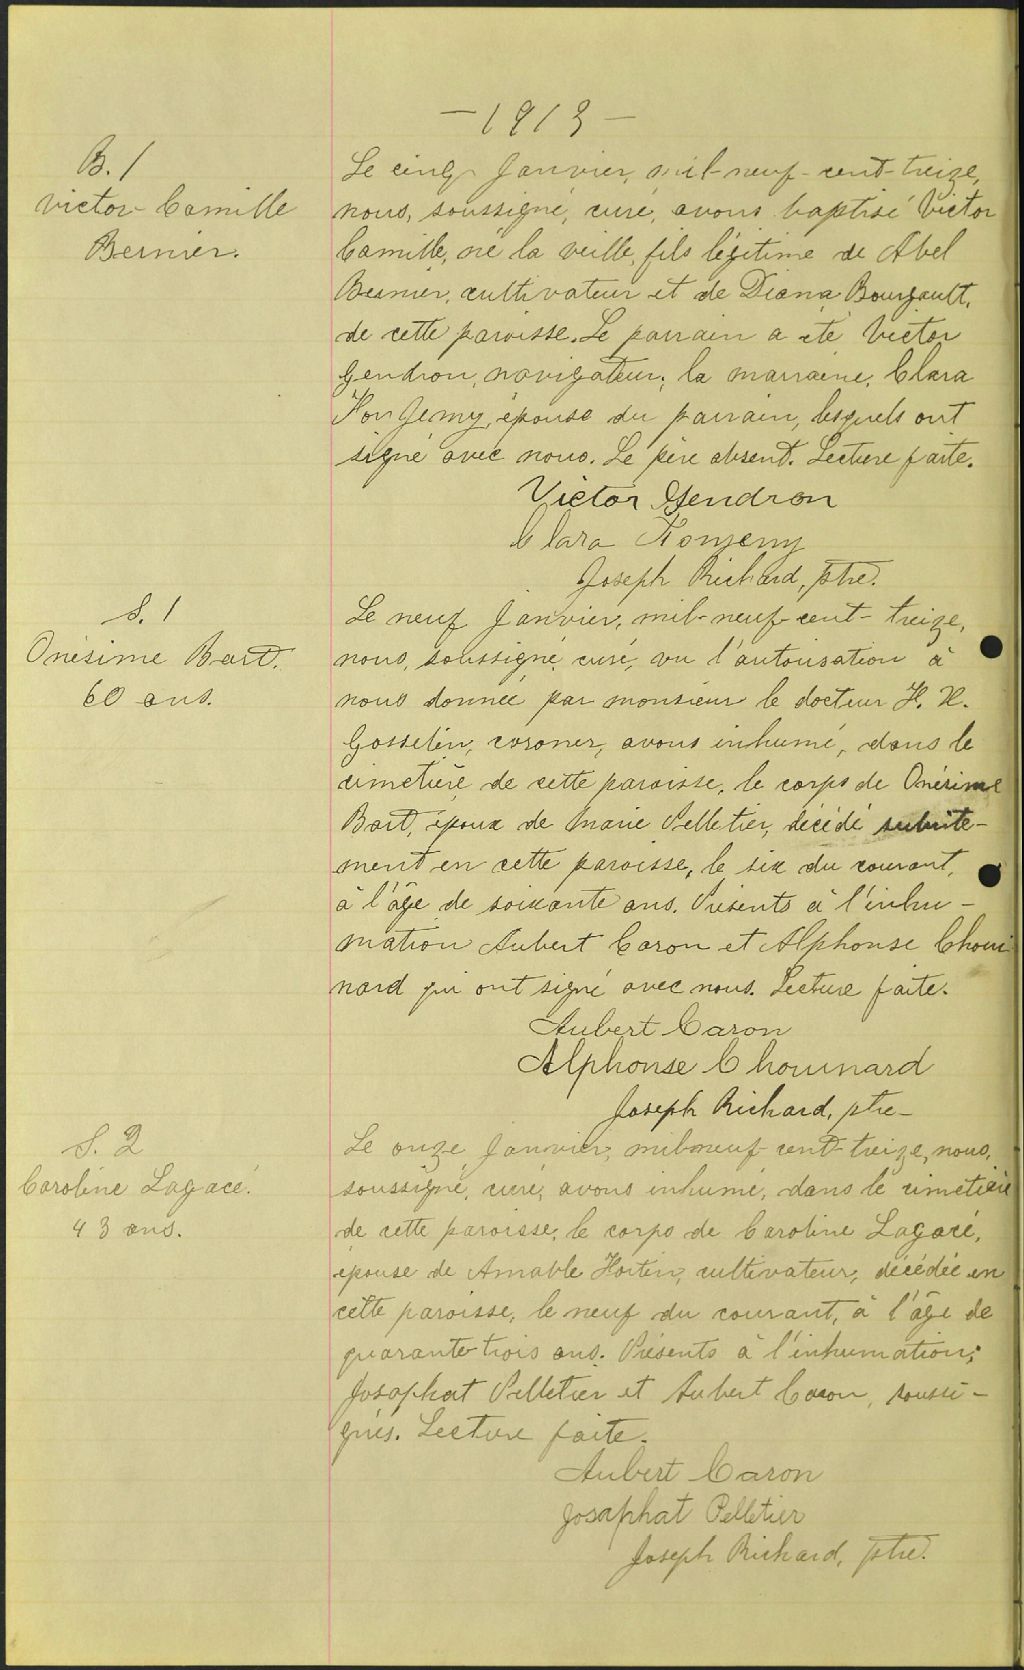 - 1913 -
B. 1
Victor Camille
Bernier.
Le cinq Janvier, mil-neuf-cent-treize,
nous, soussigné, curé, avons baptisé Victor
Camille, né la veille, fils légitime de Abel
Bernier, cultivateur et de Diana Bourgault,
de cette paroisse. Le parrain a été Victor
Gendron, navigateur; la marraine, Clara
épouse du parrain, lesquels ont
signé avec nous. Le père absent. Lecture faite.
Victor Gendron
Clara
Joseph Richard, ptre.
S. 1
Onésime Bart.
60 ans.
Le neuf Janvier, mil-neuf-cent-treize,
nous, soussigné, curé, vu l'autorisation à
nous donnée par monsieur le docteur H. H.
Gosselin, coroner, avons inhumé, dans le
cimetière de cette paroisse, le corps de Onésime
Bart, époux de Marie Pelletier, décédé subite-
ment en cette paroisse, le six du courant,
à l'âge de soixante ans. Présents à l'inhu-
mation Aubert Caron et Alphonse Choui
nard qui ont signé avec nous. Lecture faite.
Aubert Caron
Alphonse Chouinard
Joseph Richard, ptre-
S. 2
Caroline Lagacé.
43 ans.
Le onze Janvier, mil-neuf-cent-treize, nous,
soussigné, curé, avons inhumé, dans le cimetière
de cette paroisse, le corps de Caroline Lagacé,
épouse de Amable Hortin, cultivateur, décédée en
cette paroisse, le neuf du courant, à l'âge de
quarante-trois ans. Présents à l'inhumation;
Josaphat Pelletier et Aubert Caron, soussi-
gnés. Lecture faite.
Aubert Caron
Josaphat Pelletier
Joseph Richard, ptre.